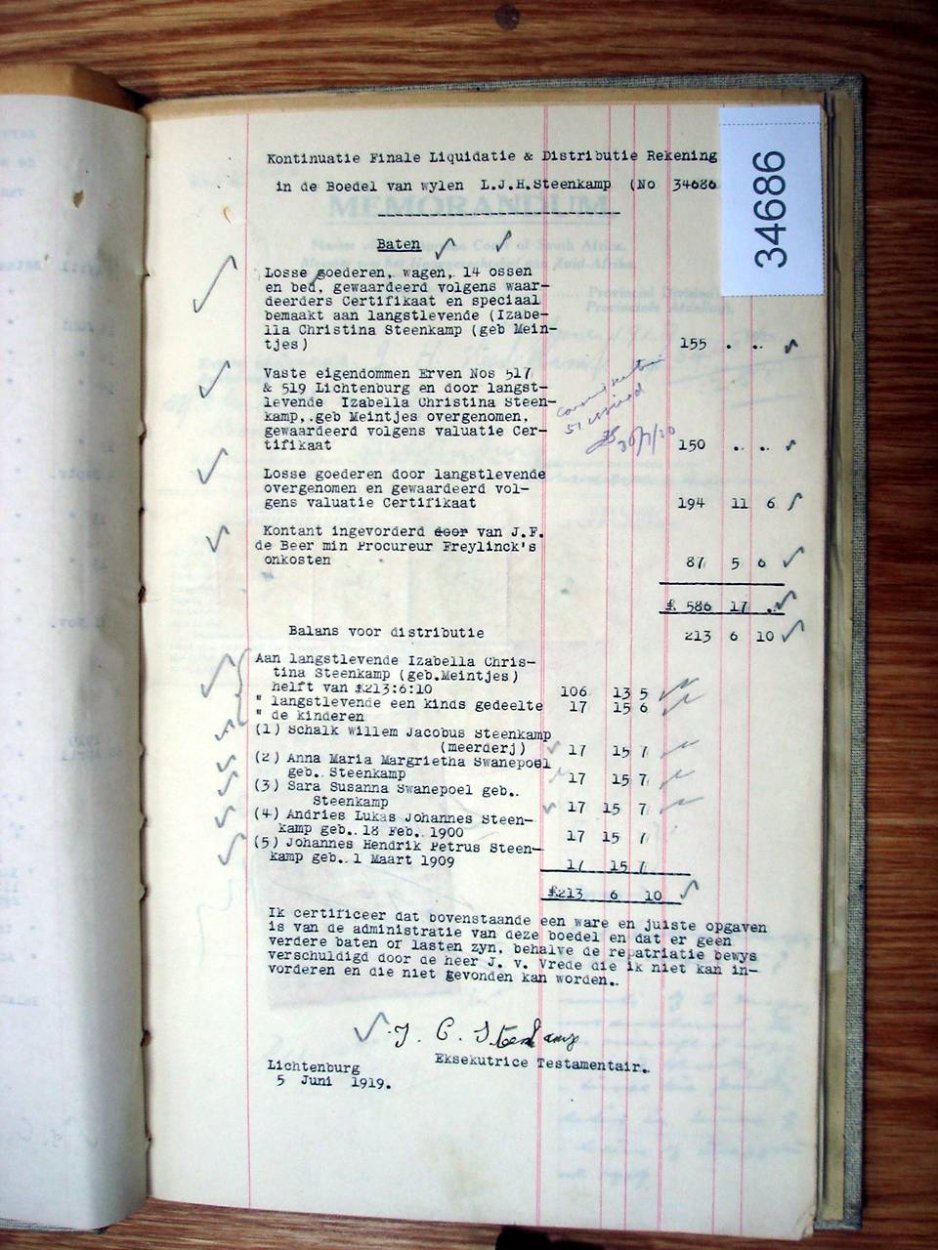 34686
Kontinuatie Finale Liquidatie & Distributie Rekening
in de Boedel van wylen L.J.H.Steenkamp (No 34686
MEMORANDUM
Baten
Losse goederen, wagen, 14 ossen
en bed, gewaardeerd volgens waar-
deerders Certifikaat en speciaal
bemaakt aan langstlevende (Izabe-
lla Christina Steenkamp (geb Mein-
tjes) 155 . ..
Vaste eigendommen Erven Nos 517
& 519 Lichtenburg en door langst-
levende Izabella Christina Steen-
kamp,.geb Meintjes overgenomen.
gewaardeerd volgens valuatie Cer-
tifikaat 150 .. ..
Losse goederen door langstlevende
overgenomen en gewaardeerd vol-
gens valuatie Certifikaat 194 11 6
Kontant ingevorderd door van J.F.
de Beer min Procureur Freylinck's
onkosten 87 5 6
£ 586 17 ..
Balans voor distributie 213 6 10
Aan langstlevende Izabella Chris-
tina Steenkamp (geb.Meintjes)
helft van £213:6:10 106 13 5
" langstlevende een kinds gedeelte 17 15 6
" de kinderen
(1) Schalk Willem Jacobus Steenkamp
(meerderj) 17 15 7
(2) Anna Maria Margrietha Swanepoel
geb.. Steenkamp 17 15 7
(3) Sara Susanna Swanepoel geb..
Steenkamp 17 15 7
(4) Andries Lukas Johannes Steen-
kamp geb.. 18 Feb.. 1900 17 15 7
(5) Johannes Hendrik Petrus Steen-
kamp geb.. 1 Maart 1909 17 15 7
£213 6 10
Ik certificeer dat bovenstaande een ware en juiste opgaven
is van de administratie van deze boedel en dat er geen
verdere baten of lasten zyn. behalve de repatriatie bewys
verschuldigd door de heer J. v. Vrede die ik niet kan in-
vorderen en die niet gevonden kan worden..
J. C. Steenkamp
Eksekutrice Testamentair..
Lichtenburg
5 Juni 1919.